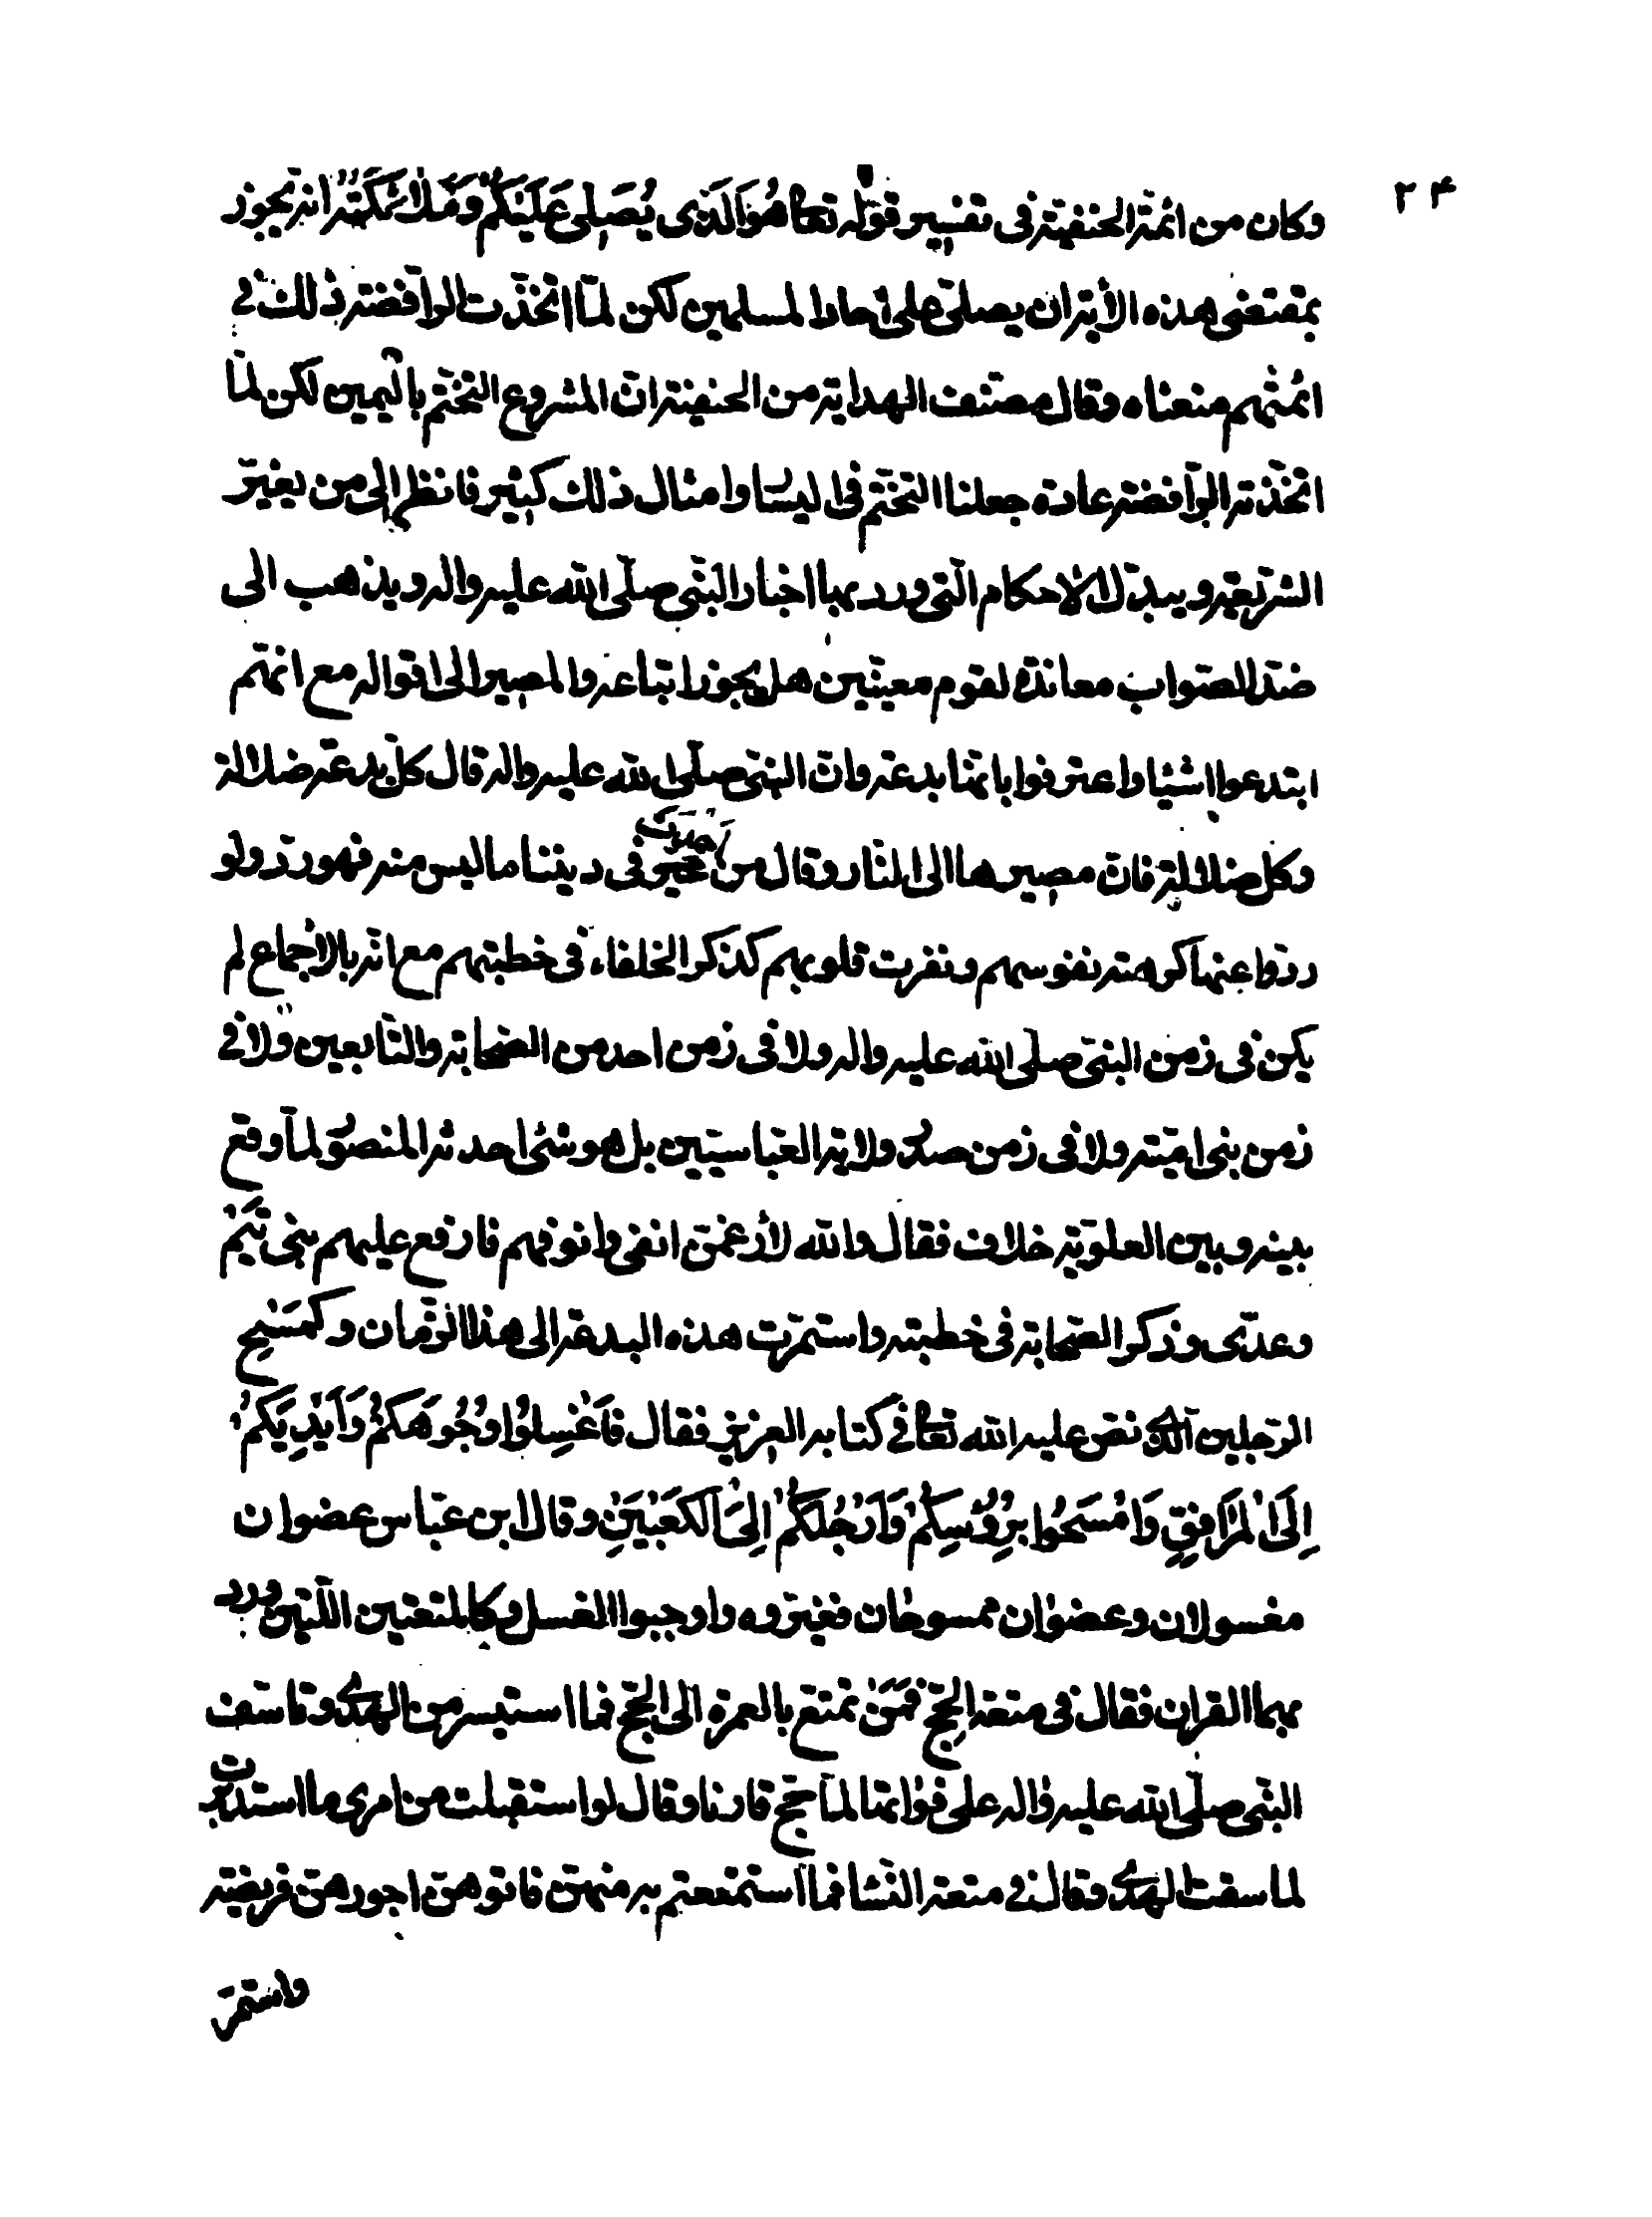 ٢۴
وكان من ائمة الحنفية فى تفسير قوله تعا هُوَ الَّذى يُصَلِّى عَلَيْكُمْ وَمَلائِكَتُه انه يجوز
بمقتضى هذه الأية ان يصلّى على احاد المسلمين لكن لمّا اتّخذت الرّافضة ذلك فى
ائمّتهم منعناه وقال مصنّف الهداية من الحنفية انّ المشروع التختّم باليمين لكن لمّا
اتخّذته الرّافضة عادة جعلنا التختّم فى اليسار وامثال ذلك كثير فانظر الى من يغيّر
الشريعة ويبدّل الأحكام الّتى ورد بها اخبار النبّى صلّى الله عليه واله ويذهب الى
ضدّ الصّواب معاندة لقوم معيّنين هل يجوز اتباعه والمصير الى اقواله مع انّهم
ابتدعوا اشياء واعترفوا بانّها بدعة وانّ النبّى صلّى الله عليه واله قال كلّ بدعة ضلالة
وكل ضلالة فانّ مصيرها الى النّار وقال من ادخل فى ديننا ما ليس منه فهو ردّ ولو
ردّوا عنها كرهته نفوسهم ونفرت قلوبهم كذكر الخلفاء فى خطبتهم مع انّه بالاجماع لم
يكن فى زمن النبىّ صلّى الله عليه واله ولا فى زمن احد من الصّحابة والتّابعين ولا فى
زمن بنى اميّة ولا فى زمن صدر ولاية العبّاسيّين بل هو شئ احدثه المنصور لمّا وقع
بينه وبين العلويّة خلاف فقال والله لأرغمنّ انفى وانوفهم فارفع عليهم بنى تَيْم
وعدّى وذكر الصّحابة فى خطبته واستمرّت هذه البدعة الى هذا الزّمان وكمَسْح
الرّجلين الّذى نصّ عليه الله تعا فى كتابه العزيز فقال فَاغْسِلُوا وُجُوهَكُمْ وَاَيْدِيَكُمْ
اِلَى الْمَرَافِقِ وَامْسَحُوا بِرُؤُسِكُمْ وَاَرْجُلَكُمْ اِلَى الْكَعْبَيْنِ وقال ابن عبّاس عضوان
مغسولان وعضوان ممسوحان فغيّروه واوجبوا الغسل وكالمتعتين اللّتين ورد
بهما القران فقال فى متعة الحجّ فَمَنْ تمتّع بالعمرة الى الحجّ فما استيسر من الهدى وتاسّف
النبّى صلّى الله عليه واله على فواتها لمّا حجّ قارنا وقال لو استقبلت من امرى ما استدبرت
لما سقت الهدى وقال فى متعة النّسا فما استمتعتم به منهنّ فاتوهنّ اجورهنّ فريضة
واستمرّ